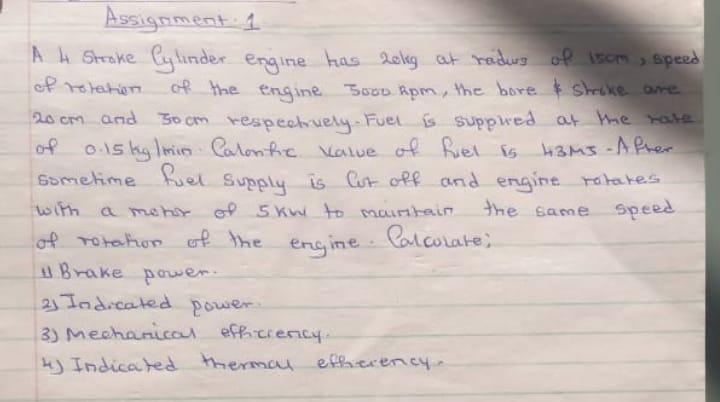 Assignment. 1
A 4 Stroke Cylinder engine has 20kg at radius of 15cm, speed
of rotation of the engine 3000 Rpm, the bore & stroke are
20 cm and 30 cm respectively. Fuel is supplied at the rate
of 0.15 kg/min. Calorific Value of fuel is 43MJ - After
sometime fuel supply is Cut off and engine rotates
with a motor of 5 KW to maintain the same speed
of rotation of the engine. Calculate;
1) Brake power.
2) Indicated power.
3) Mechanical efficiency.
4) Indicated thermal efficiency.